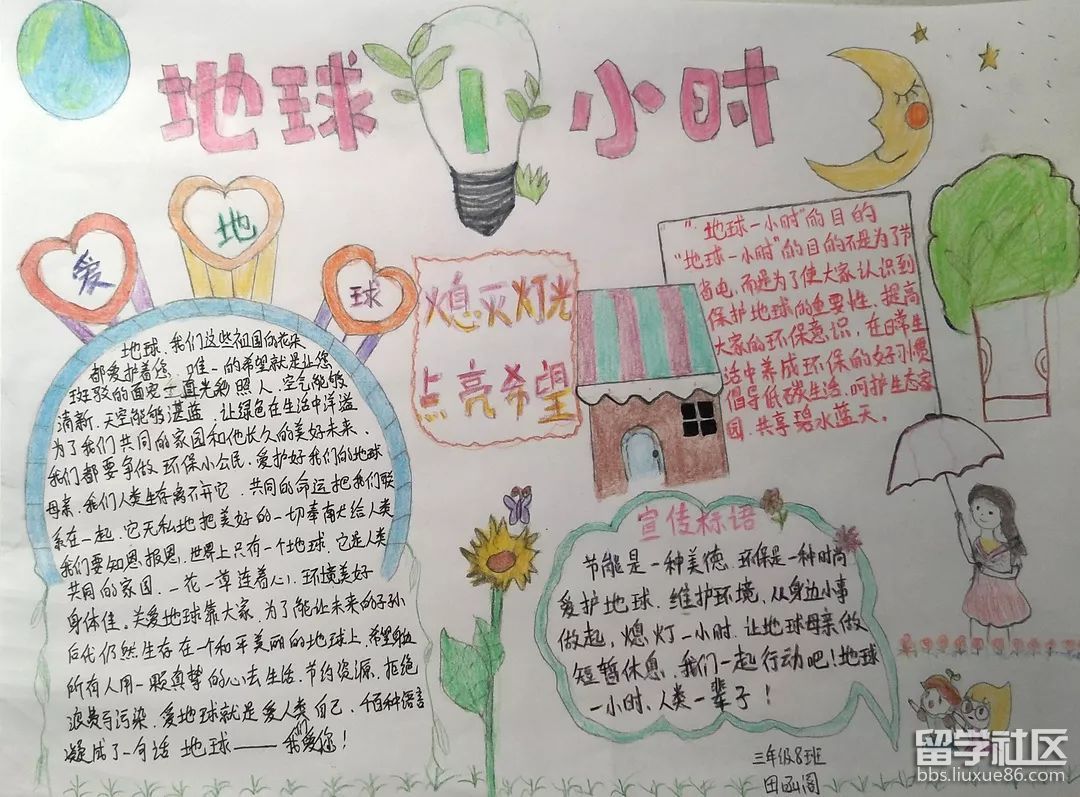 地球1小时
爱
地
球
地球、我们这些祖国的花朵
都爱护着您，唯一的希望就是让您
斑驳的面容一直光彩照人，空气能够
清新、天空能够湛蓝，让绿色在生活中洋溢
为了我们共同的家园和他长久的美好未来，
我们都要争做环保小公民，爱护好我们的地球
母亲，我们人类生存离不开它，共同的命运把我们联
系在一起，它无私地把美好的一切奉献给人类
我们要知恩报恩，世界上只有一个地球，它是人类
共同的家园，一花一草连着人心，环境美好
身体佳。关爱地球靠大家，为了能让未来的子孙
后代仍然生存在一个和平美丽的地球上，希望身边
所有人用一颗真挚的心去生活，节约资源，拒绝
浪费与污染，爱地球就是爱人类自己，千百种语言
凝成了一句话 地球——我们爱您！
熄灭灯光
点亮希望
"地球一小时"的目的
"地球一小时"的目的不是为了节
省电，而是为了使大家认识到
保护地球的重要性，提高
大家的环保意识，在日常生
活中养成环保的好习惯
倡导低碳生活，呵护生态家
园，共享碧水蓝天。
宣传标语
节能是一种美德，环保是一种时尚
爱护地球，维护环境，从身边小事
做起，熄灯一小时，让地球母亲做
短暂休息，我们一起行动吧！地球
一小时、人类一辈子！
三年级8班
田函阁
留学社区
bbs.liuxue86.com